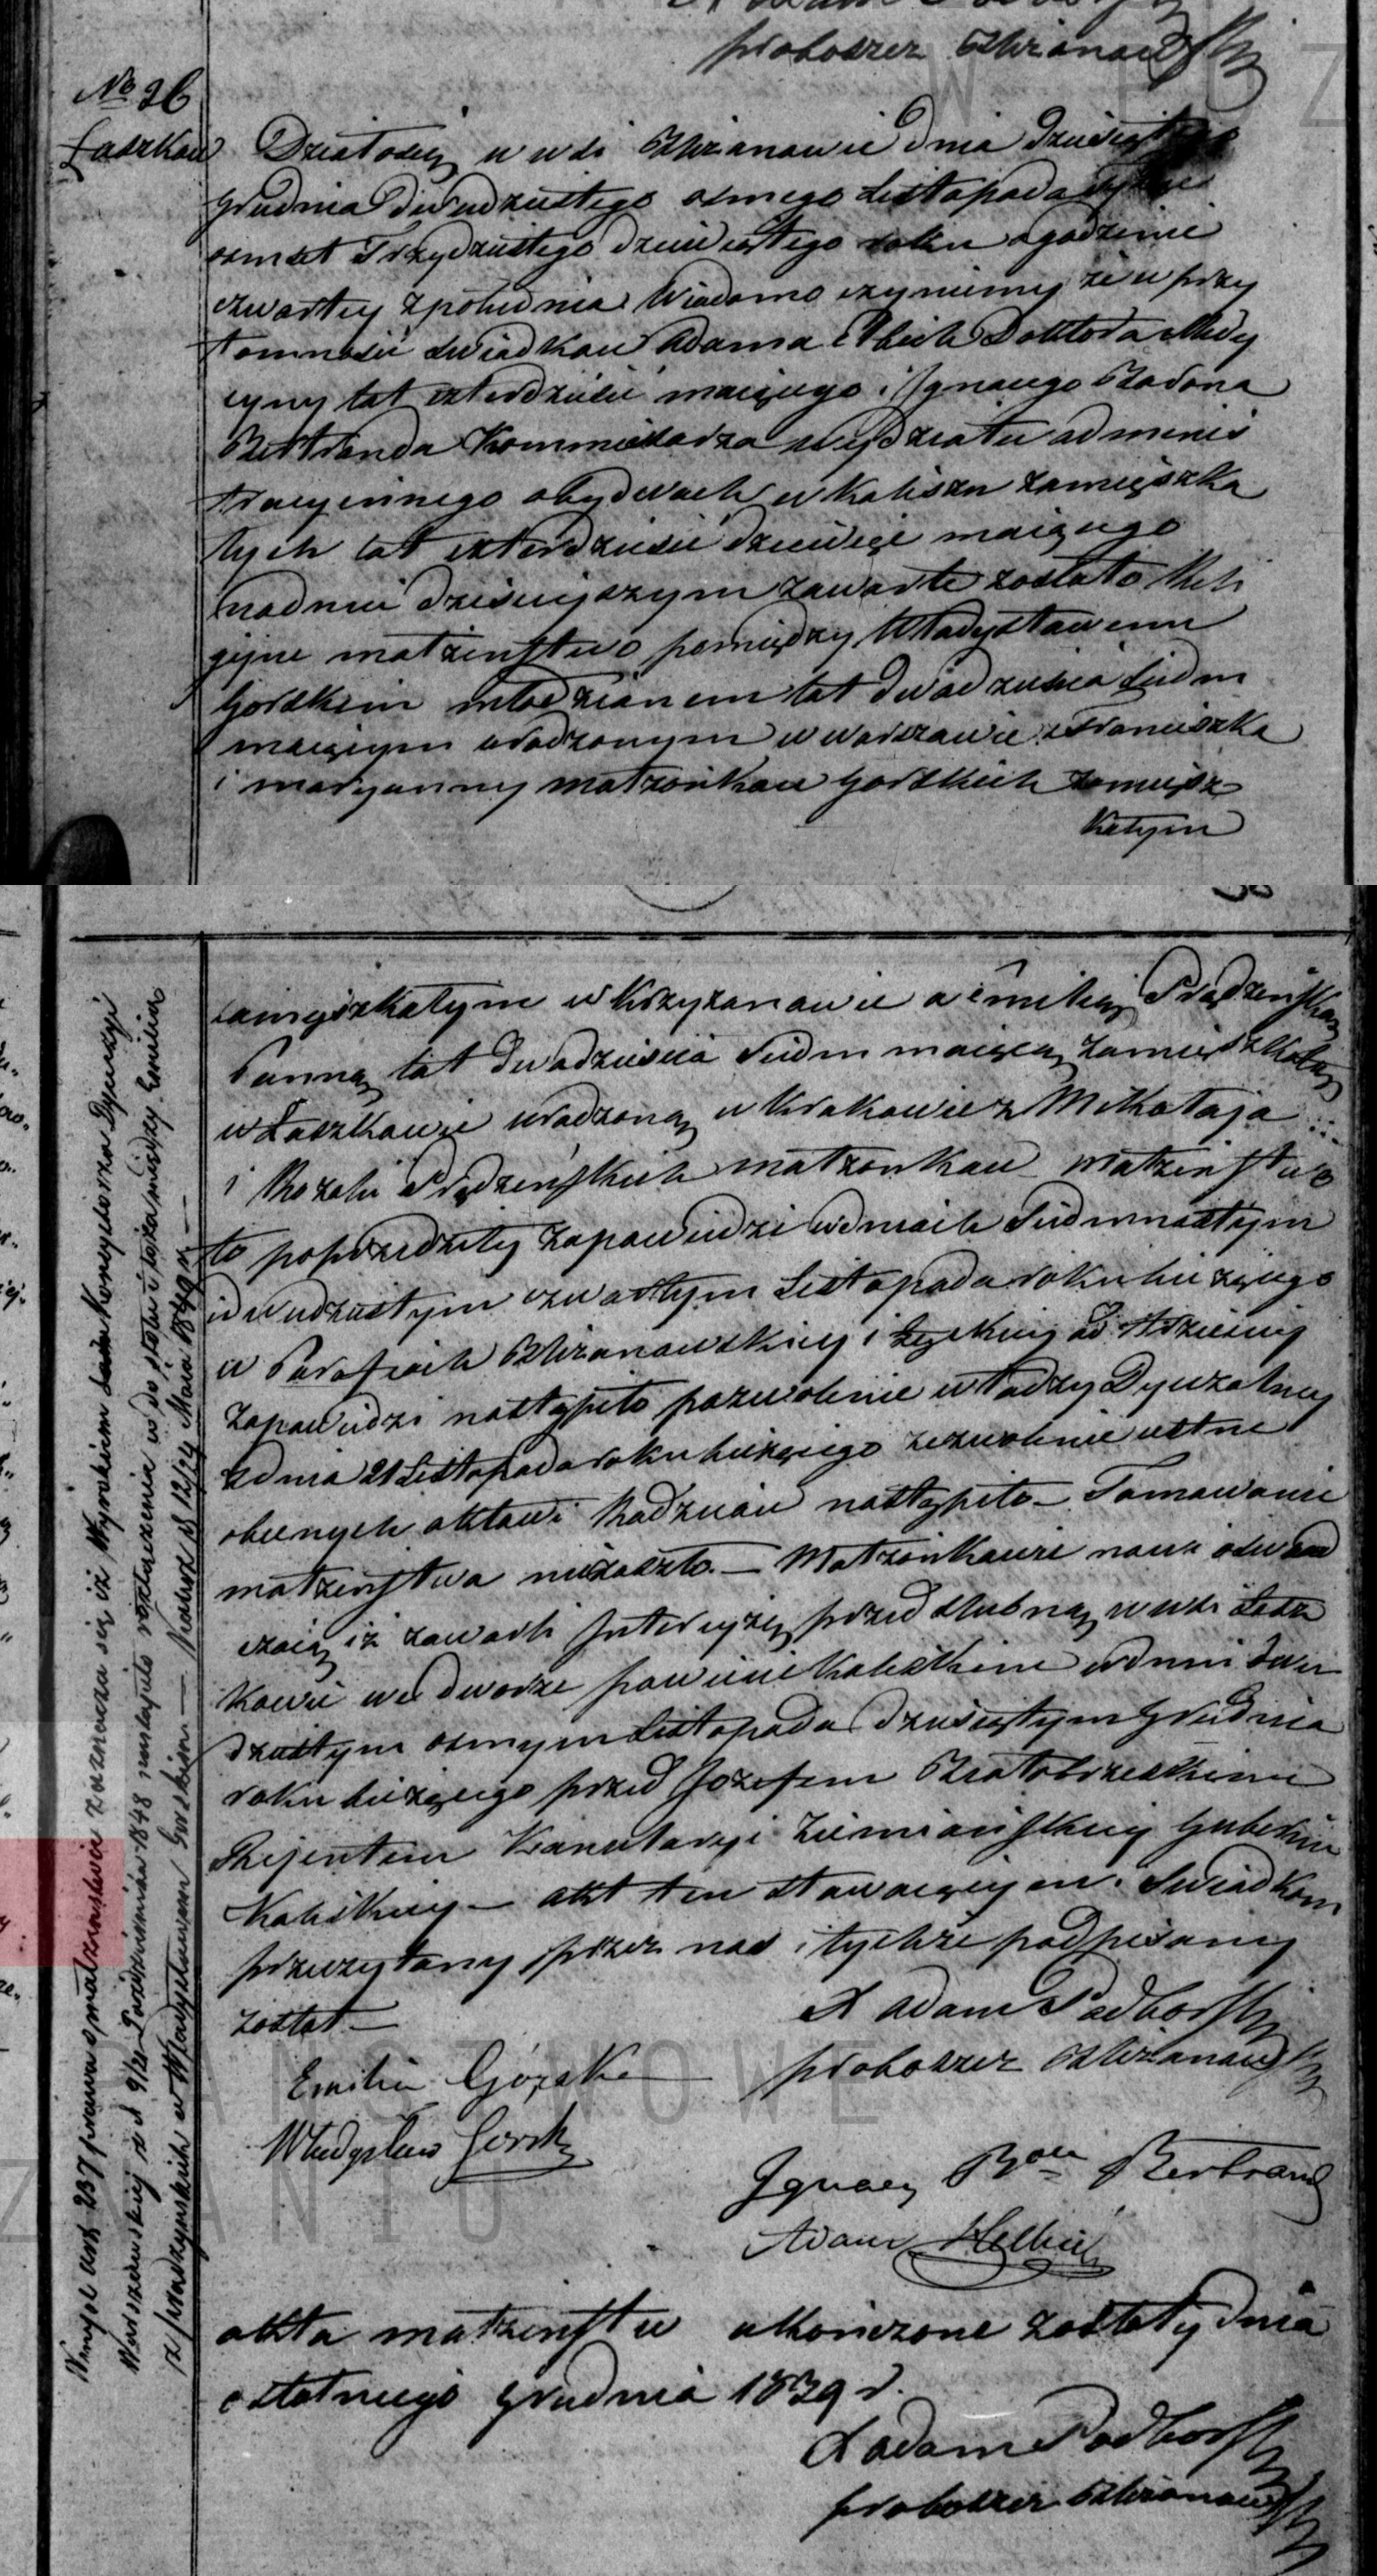 proboszcz Chrzanowski
No 26
Laszków
Działo się w wsi Chrzanowie dnia dziesiątego
grudnia dwudziestego osmego Listopada tysiąc
osmset Trzydziestego dziewiątego roku o godzinie
czwartey z południa Wiadomo czyniemy że w przy
tomności swiadków Adama Helbich Doktora Medy
cyny lat czterdzieści maiącego i Ignacego Barona
Bertranda Kommissarza wydziału adminis
tracyjnego obydwoch w Kaliszu zamięszka
łych lat czterdzieści dziewięć maiącego
na dniu dzisieyszym zawarte zostało Reli
gijne małżeństwo pomiędzy Władysławem
Gorskiem młodzianem lat dwadzieścia siedm
maiącym urodzonym w Warszawie z Franciszka
i maryanny małżonków Gorskich zamięsz
kałym
zamięszkałym w Krzyżanowie a Emilią Prądzyńską
Panną lat dwadzieścia siedm maiącą zamięszkałą
w Laszkowie urodzoną w Krakowie z Mikołaja
i Rozalii Prądzeńskich małżonków Małżeństwo
to poprzedziły zapowiedzi w dniach siedmnastym
i dwudziestym czwartym Listopada roku bieżącego
w Parafiach Chrzanowskiey i od trzeciey
zapowiedzi nastąpiło pozwolenie władzy Dyecezalney
z dnia 21 Listopada roku bieżącego zezwolenie ustne
obecnych aktowi Rodziców nastąpiło – Tamowanie
małżeństwa niezaszło. – Małżonkowie nowi oswiad
czaią iż zawarli Intercyzę przedslubną w wsi Lasz
kowie we dworze powiecie Kaliskim w dniu dwu
dziestym osmym Listopada dziesiątym Grudnia
roku bieżącego przed Józefem Białobrzeskim
Rejentem Kancelaryi Ziemiańskiey Gubernii
Kaliskiey – akt ten stawaiącym i Swiadkom
przeczytany przez nas i tychże podpisany
został –
X Adam Podborski
proboszcz Chrzanowski
Emilia Górska
Władysław Gorski
Ignacy Bon Bertrand
Adam Helbich
akta małżeństw ukończone zostały dnia
ostatniego grudnia 1839 r.
X adam Podborski
proboszcz Chrzanowski
W myśl art 237 prawa o małżeństwie zaznacza się iż Wyrokiem Sądu Konsystorza Dyecezyi
Warszawskiey z d 9/21 Października 1848 nastąpiło rozłączenie co do stołu i łoża między Emilią
z Prądzyńskich a Władysławem Gorskim – Kalisz d 12/24 Maia 1849 r. –